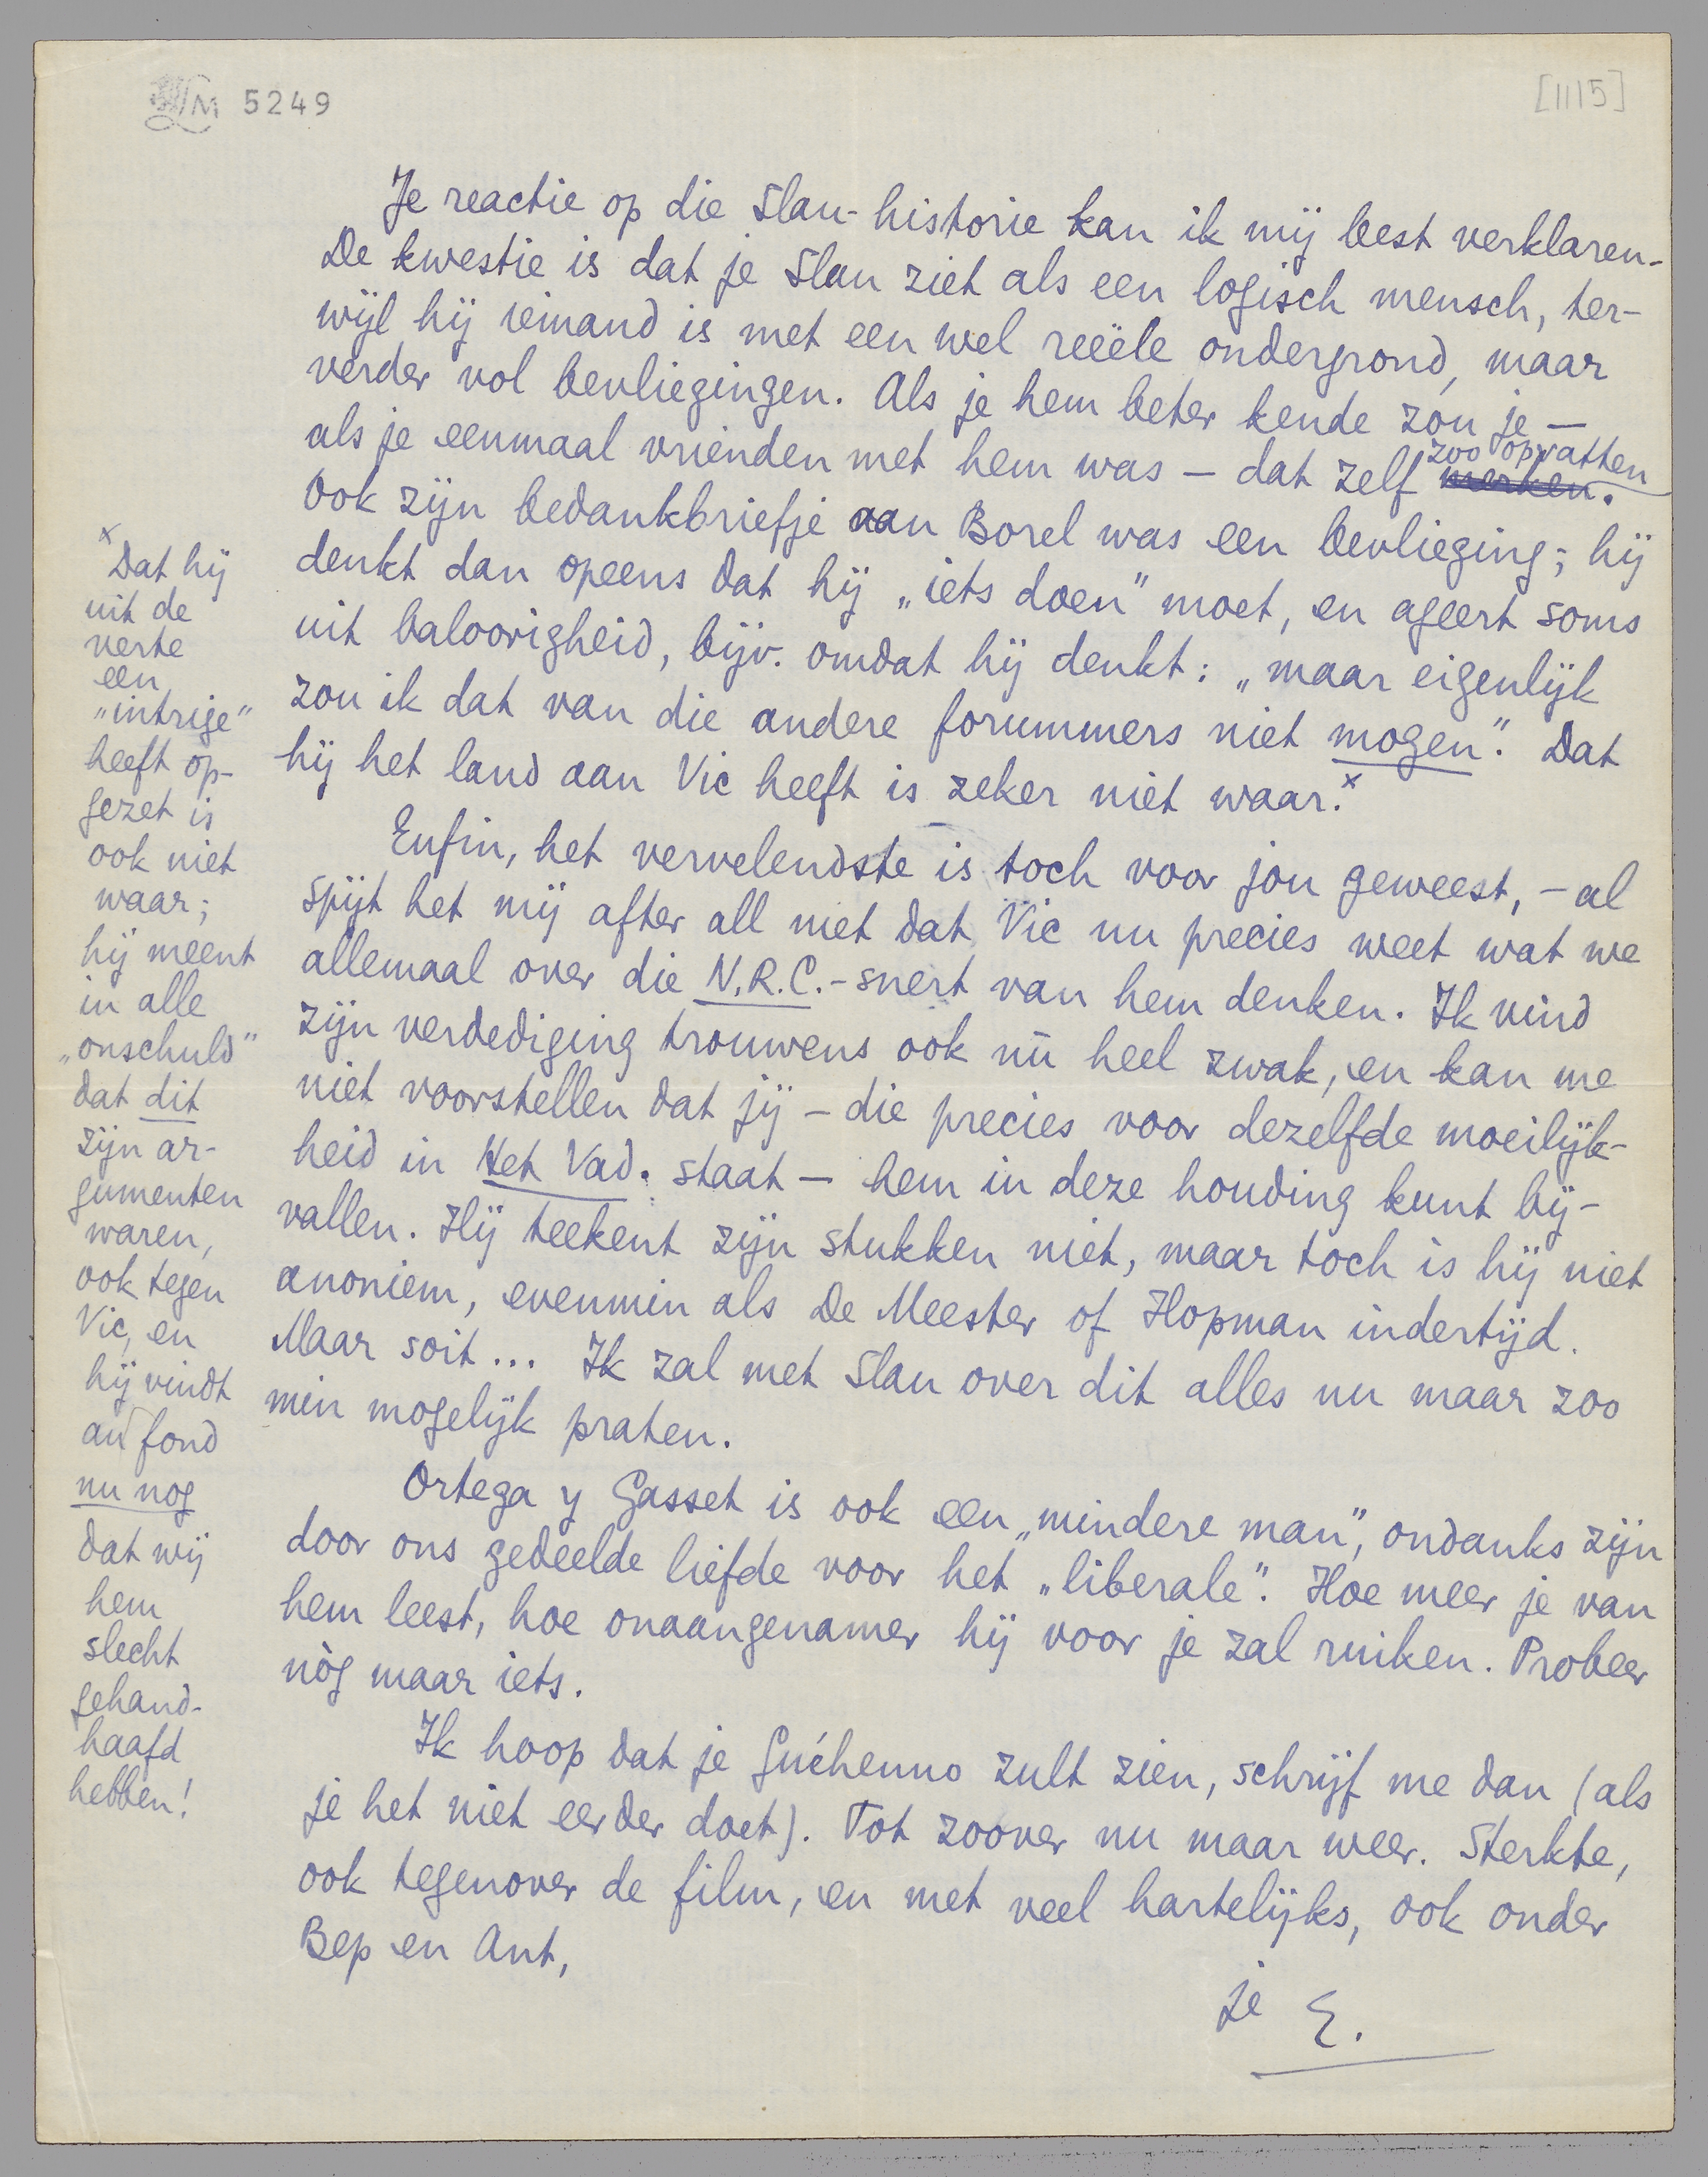 LM 5249
[1115]
Je reactie op die Slau-historie kan ik mij best verklaren.
De kwestie is dat je Slau ziet als een logisch mensch, ter-
wijl hij iemand is met een wel reëele ondergrond, maar
verder vol bevliegingen. Als je hem beter kende zou je —
als je eenmaal vrienden met hem was — dat zelf zoo opvatten merken.
Ook zijn bedankbriefje aan Borel was een bevlieging; hij
denkt dan opeens dat hij „iets doen" moet, en ageert soms
uit baloorigheid, bijv. omdat hij denkt: „maar eigenlijk
zou ik dat van die andere forummers niet mogen". Dat
hij het land aan Vic heeft is zeker niet waar.x
Enfin, het vervelendste is toch voor jou geweest, – al
spijt het mij after all niet dat Vic nu precies weet wat we
allemaal over die N.R.C.-snert van hem denken. Ik vind
zijn verdediging trouwens ook nù heel zwak, en kan me
niet voorstellen dat jij – die precies voor dezelfde moeilijk-
heid in Het Vad. staat – hem in deze houding kunt bij-
vallen. Hij teekent zijn stukken niet, maar toch is hij niet
anoniem, evenmin als De Meester of Hopman indertijd.
Maar soit... Ik zal met Slau over dit alles nu maar zoo
min mogelijk praten.
Ortega y Gasset is ook een „mindere man", ondanks zijn
door ons gedeelde liefde voor het „liberale". Hoe meer je van
hem leest, hoe onaangenamer hij voor je zal ruiken. Probeer
nòg maar iets.
Ik hoop dat je Guéhenno zult zien, schrijf me dan (als
je het niet eerder doet). Tot zoover nu maar weer. Sterkte,
ook tegenover de film, en met veel hartelijks, ook onder
Bep en Ant,
je E.
x Dat hij
uit de
verte
een
„intrige"
heeft op-
gezet is
ook niet
waar;
hij meent
in alle
„onschuld"
dat dit
zijn ar-
gumenten
waren,
ook tegen
Vic, en
hij vindt
au fond
nu nog
dat wij
hem
slecht
gehand-
haafd
hebben!